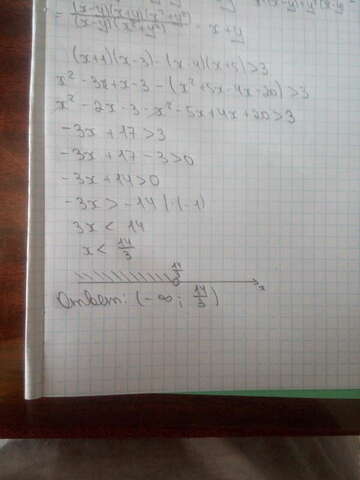 = (x-y)(x+y)(x²+y²) / (x-y)(x²+y²) = x+y
(x+1)(x-3) - (x-4)(x+5)>3
x² - 3x + x - 3 - (x² + 5x - 4x - 20) > 3
x² - 2x - 3 - x² - 5x + 4x + 20 > 3
-3x + 17 > 3
-3x + 17 - 3 > 0
-3x + 14 > 0
-3x > -14 | · (-1)
3x < 14
x < 14/3
14/3
x
Ответ: (-∞; 14/3)